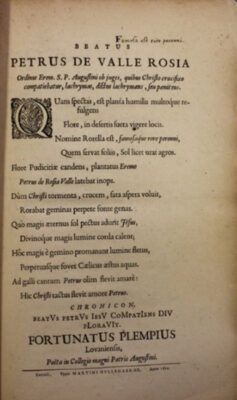 Famosa est rore perenni.
BEATUS
PETRUS DE VALLE ROSIA
Ordinis Erem. S. P. Augustini ob juges, quibus Christo crucifixo
compatiebatur, lachrymas, dictus lachrymans, seu panitens.
QUam spectas, est planta humilis multoque re-
fulgens
Flore, in desertis sueta vigere locis.
Nomine Rorella est, famosaque rore perenni,
Quem servat foliis, Sol licet urat agros.
Flore Pudicitiæ candens, plantatus Eremo
Petrus de Rosia Valle latebat inops.
Dùm Christi tormenta, crucem, fata aspera voluit,
Rorabat geminas perpete fonte genas.
Quo magis æternus sol pectus adurit Jesus,
Divinoque magis lumine corda calent;
Hôc magis è gemino promanant lumine fletus,
Perpetuasque fovet Cælicus æstus aquas.
Ad galli cantum Petrus olim flevit amarè:
Hic Christi tactus flevit amore Petrus.
CHRONICON,
BEATVS PETRVS IESV COMPATIENS DIV
PLORAVIT.
FORTUNATUS PLEMPIUS
Lovaniensis,
Poëta in Collegio magni Patris Augustini.
Typis MARTINI HULLEGAERDE,